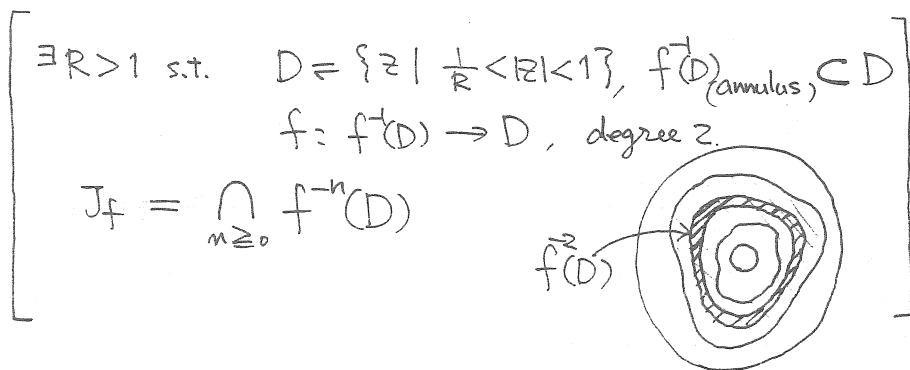 ∃R>1 s.t. D = {z | 1/R < |z| < 1}, f⁻¹(D) (annulus) ⊂ D
f : f⁻¹(D) → D, degree 2.
J_f = ⋂_{n≧0} f⁻ⁿ(D)
f⁻²(D)